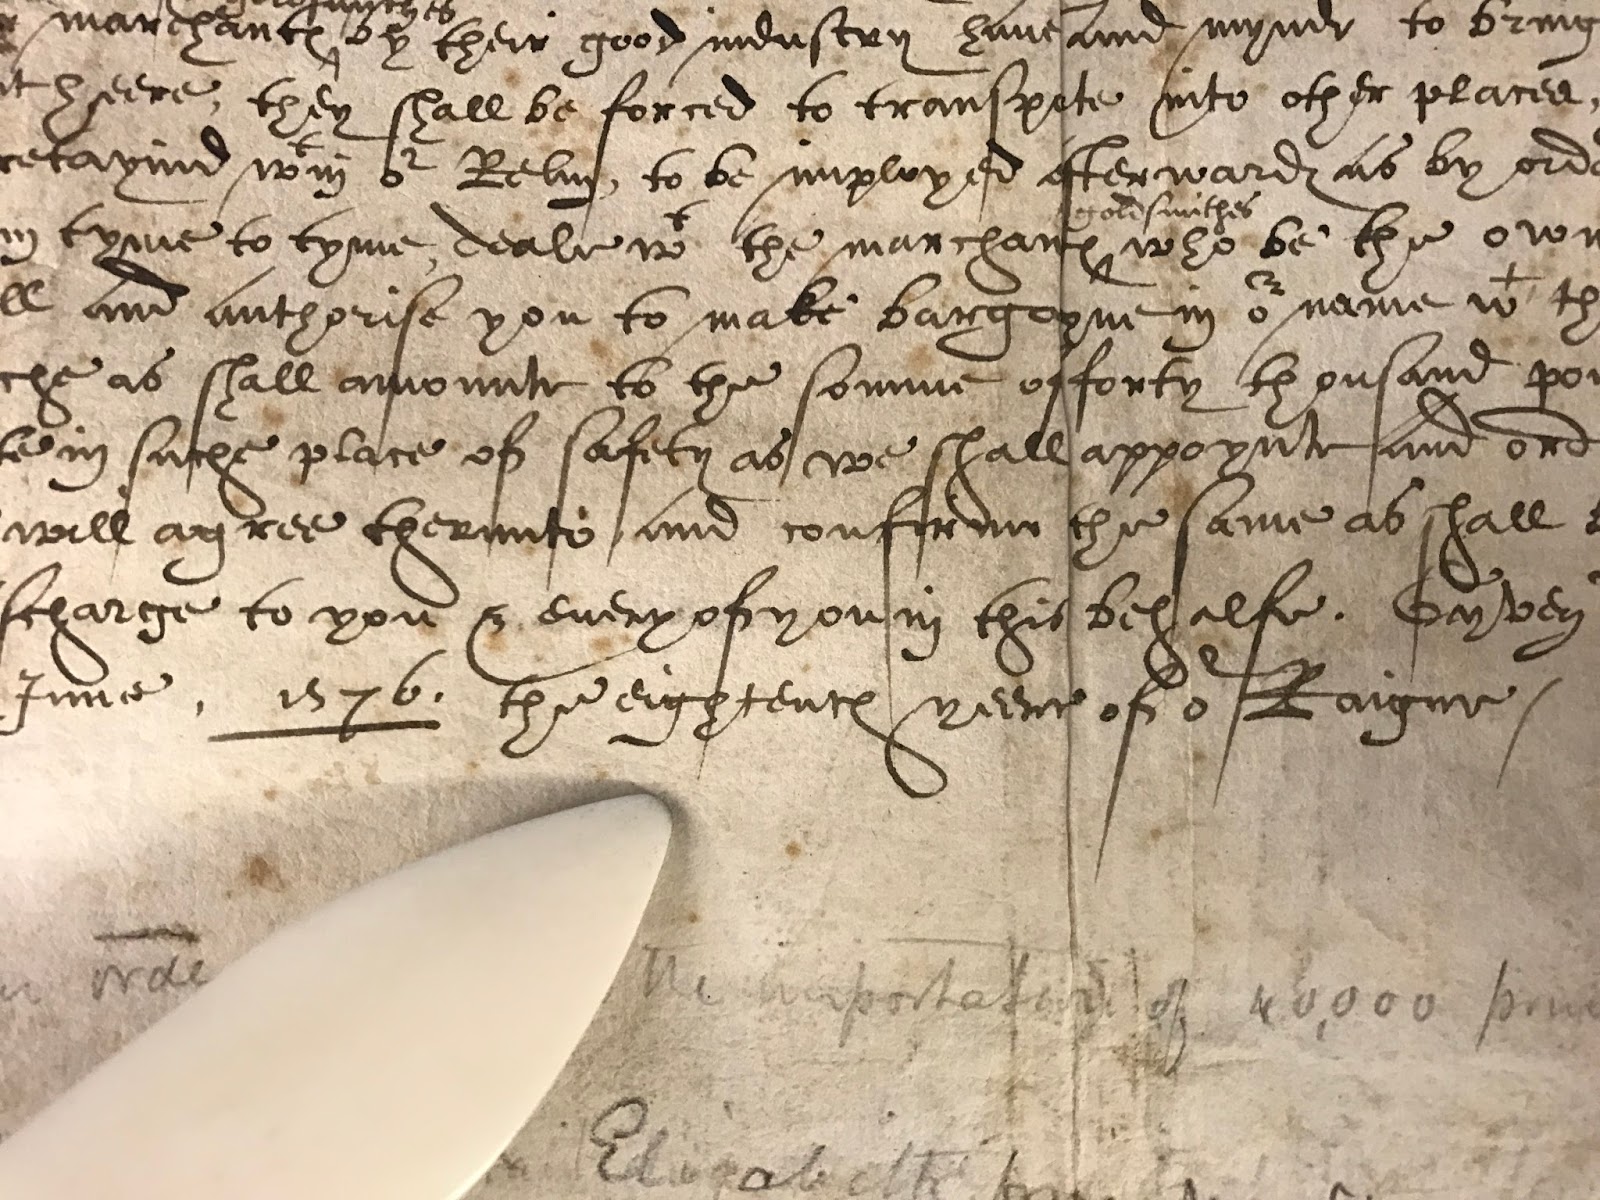 goldsmithes
marchantes by their good industry haue and mynde to bring
heere, they shall be forced to transpete into other places,
retaynid wtin or Relm, to be imployed afterwardes as by orde
goldsmithes
in tyme to tyme, deale wt the marchantes who be the own
ll and authorise you to make bargayne in or name wt th
che as shall amounte to the somme of forty thousand pou
te in suche place of safety as we shall appoynte and ord
will agree therunto and confirme the same as shall b
scharge to you & euery of you in this behalfe. Gyven
June, 1576. the eightenth yeere of or Raigne /
orde the importation of 40,000
Elizabeth